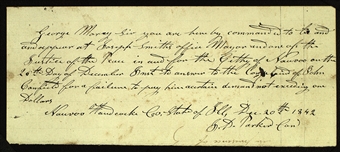 George Morey Sir you are hereby commanded to be and
and appear at Joseph Smiths office Mayor and one of the
Justice of the Peace in and for the City of Nauvoo on the
20th Day of December Inst to answer to the Complaint of John
Canfield for a failure to pay him a certain demand not exceeding one
Dollars
Nauvoo Handcocke Co. State of Ill, Dec 20th 1842
H. D. Parked Con